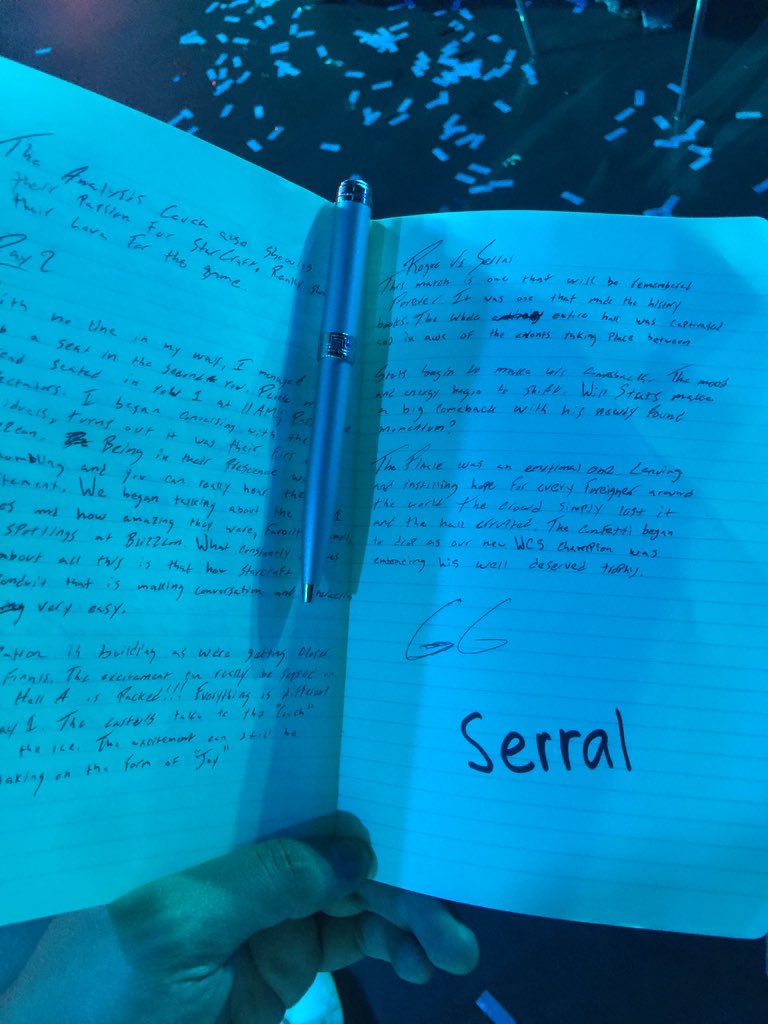 The Analysis Couch also showing
their Passion For StarCraft. Really
their Love For the game.
Day 2
with no line in my way, I managed
a seat in the Second row.
seated in row 1 at 11AM;
I began conversing with the
turns out it was their
Being in their Presence
humbling and you can really hear the
We began talking about the
and how amazing they were, Favorite
Spottings at Blizzcon. What constantly
about all this is that how Starcraft
conduit that is making conversation and
very easy.
is building as we're getting closer
Finals. The excitement can really be
Hall A is Packed!!! Everything is different
Day 1. The casters talk to the "couch"
the ice. The excitement can still be
taking on the Form of "Joy"
Rogue Vs Serral
This match is one that will be remembered
Forever. It was one that made the history
books. The whole entire hall was captivated
and in awe of the events taking Place between
Stats begin to make his comeback. The mood
and energy begin to shift. Will Stats make
a big comeback with his newly Found
momentum?
The Finale was an emotional one Leaving
and instilling hope For every Foreigner around
the world. The crowd simply lost it
and the hall erupted. The confetti began
to drop as our new WCS Champion was
embracing his well deserved trophy.
GG
Serral